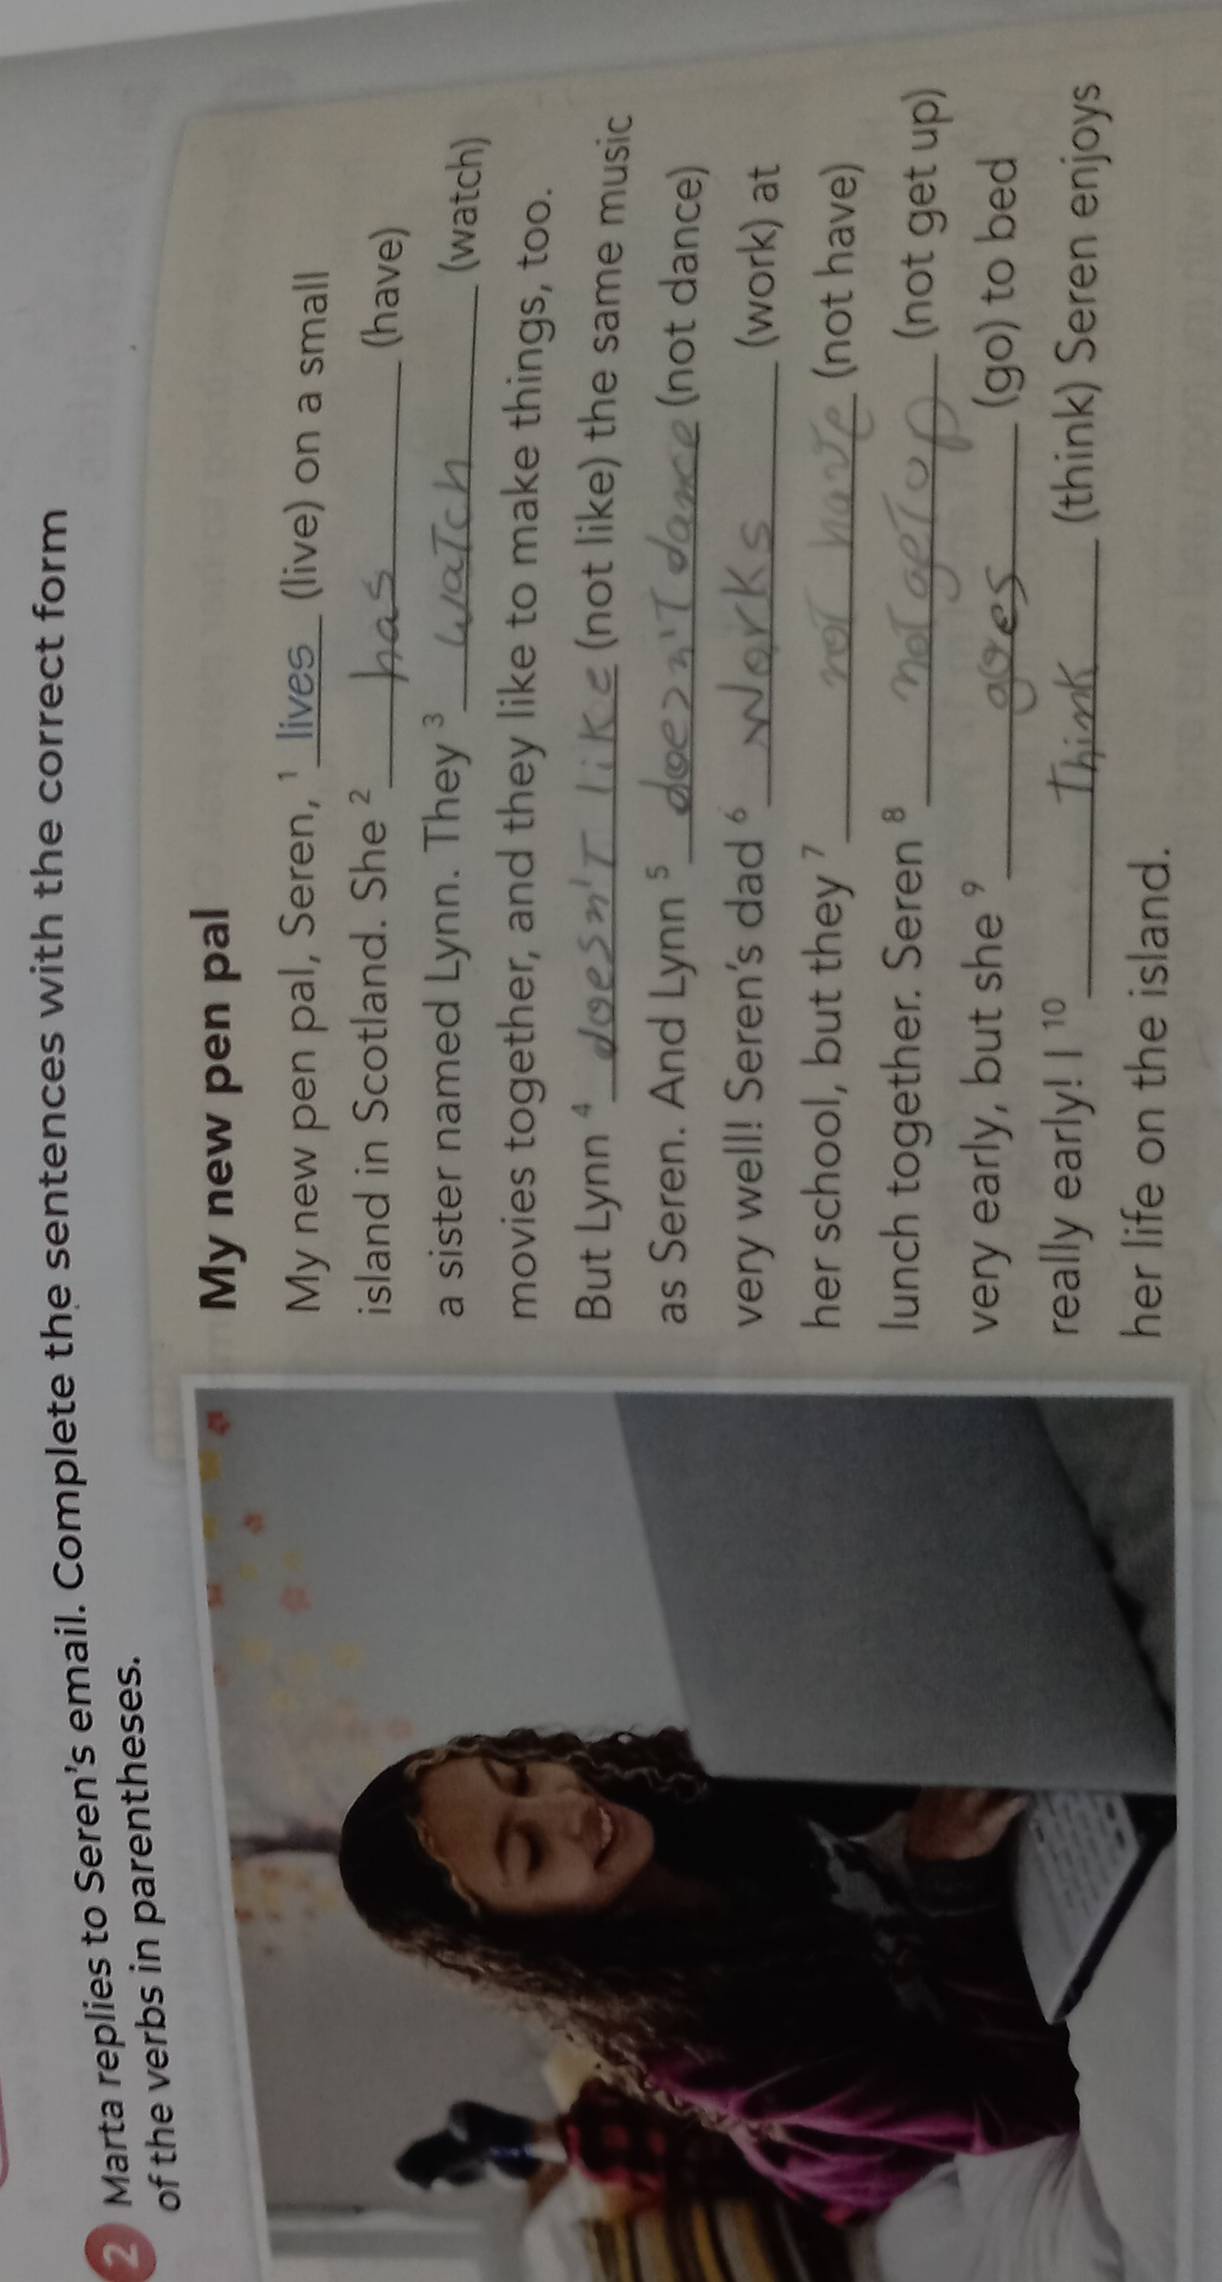 2 Marta replies to Seren's email. Complete the sentences with the correct form
of the verbs in parentheses.
My new pen pal
My new pen pal, Seren, 1 lives (live) on a small
island in Scotland. She 2 has (have)
a sister named Lynn. They 3 watch (watch)
movies together, and they like to make things, too.
But Lynn 4 doesn't like (not like) the same music
as Seren. And Lynn 5 doesn't dance (not dance)
very well! Seren's dad 6 works (work) at
her school, but they 7 not have (not have)
lunch together. Seren 8 not get up (not get up)
very early, but she 9 goes (go) to bed
really early! I 10 think (think) Seren enjoys
her life on the island.